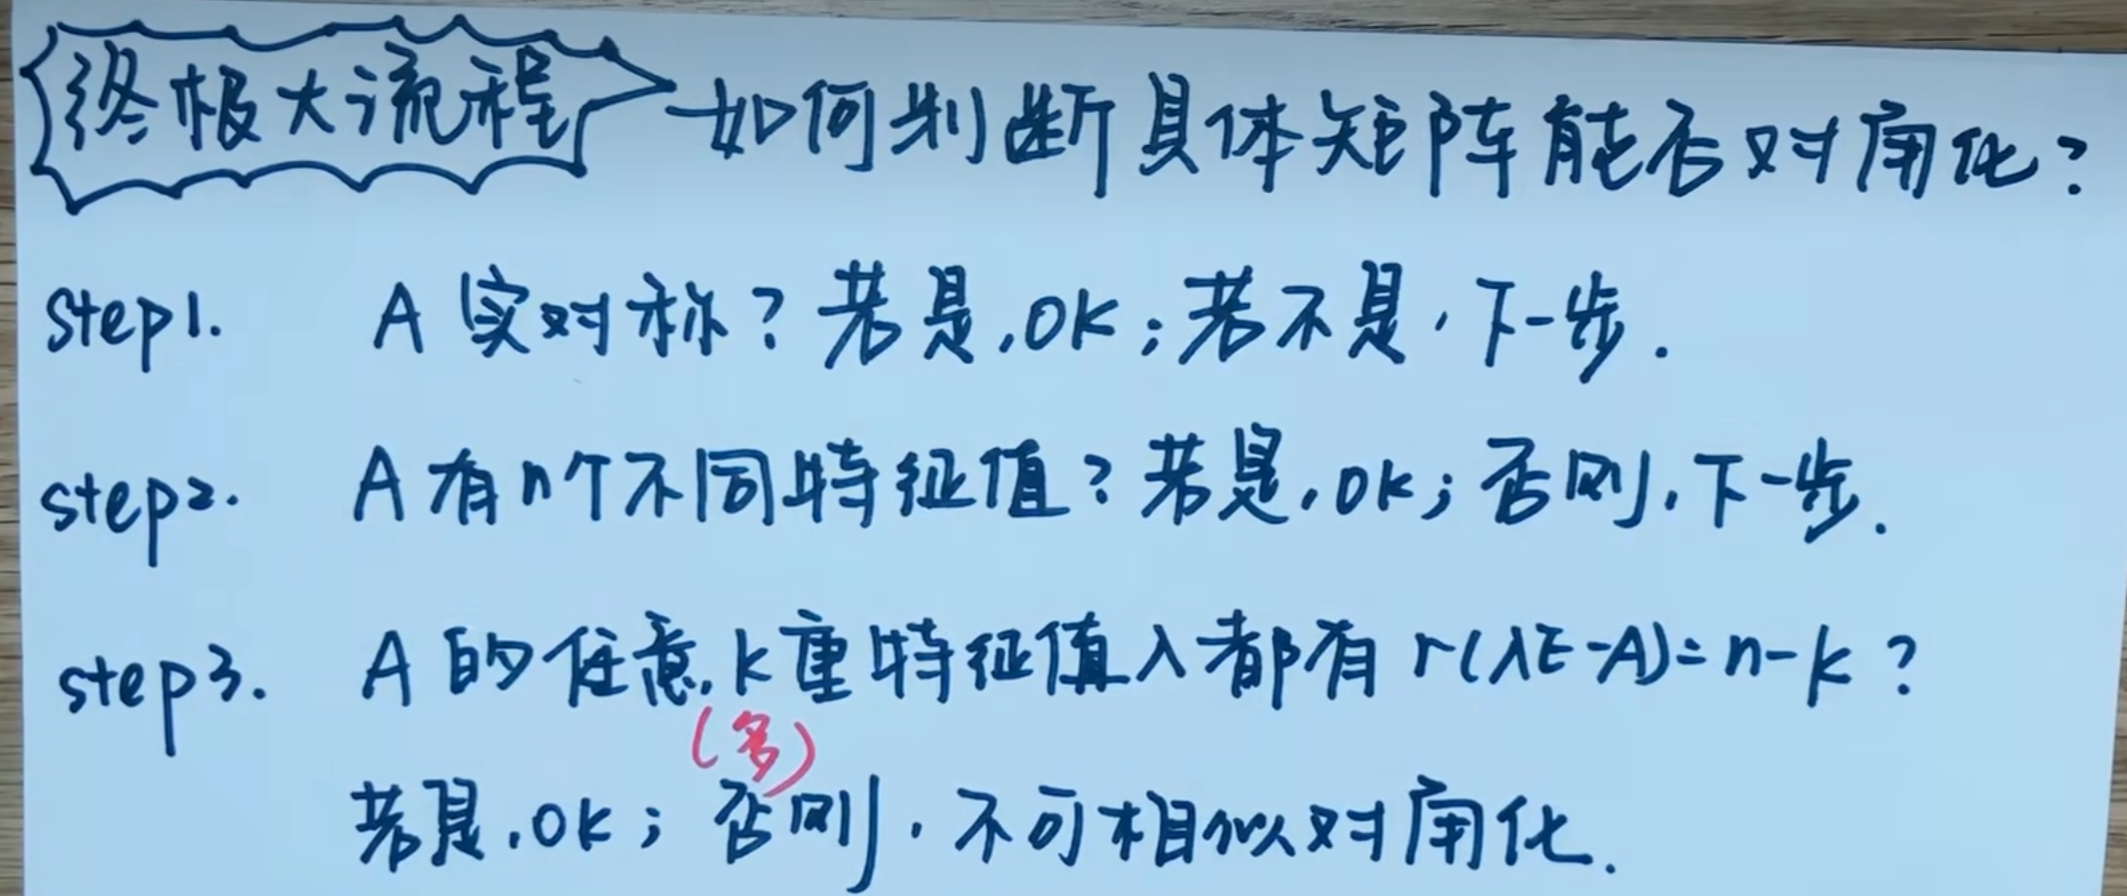 终极大流程 如何判断具体矩阵能否对角化?
step1. A 实对称? 若是,OK;若不是,下一步.
step2. A 有n个不同特征值? 若是,OK; 否则,下一步.
step3. A 的任意,k重特征值λ都有 r(λE-A)=n-k ?
(多)
若是,OK; 否则,不可相似对角化.